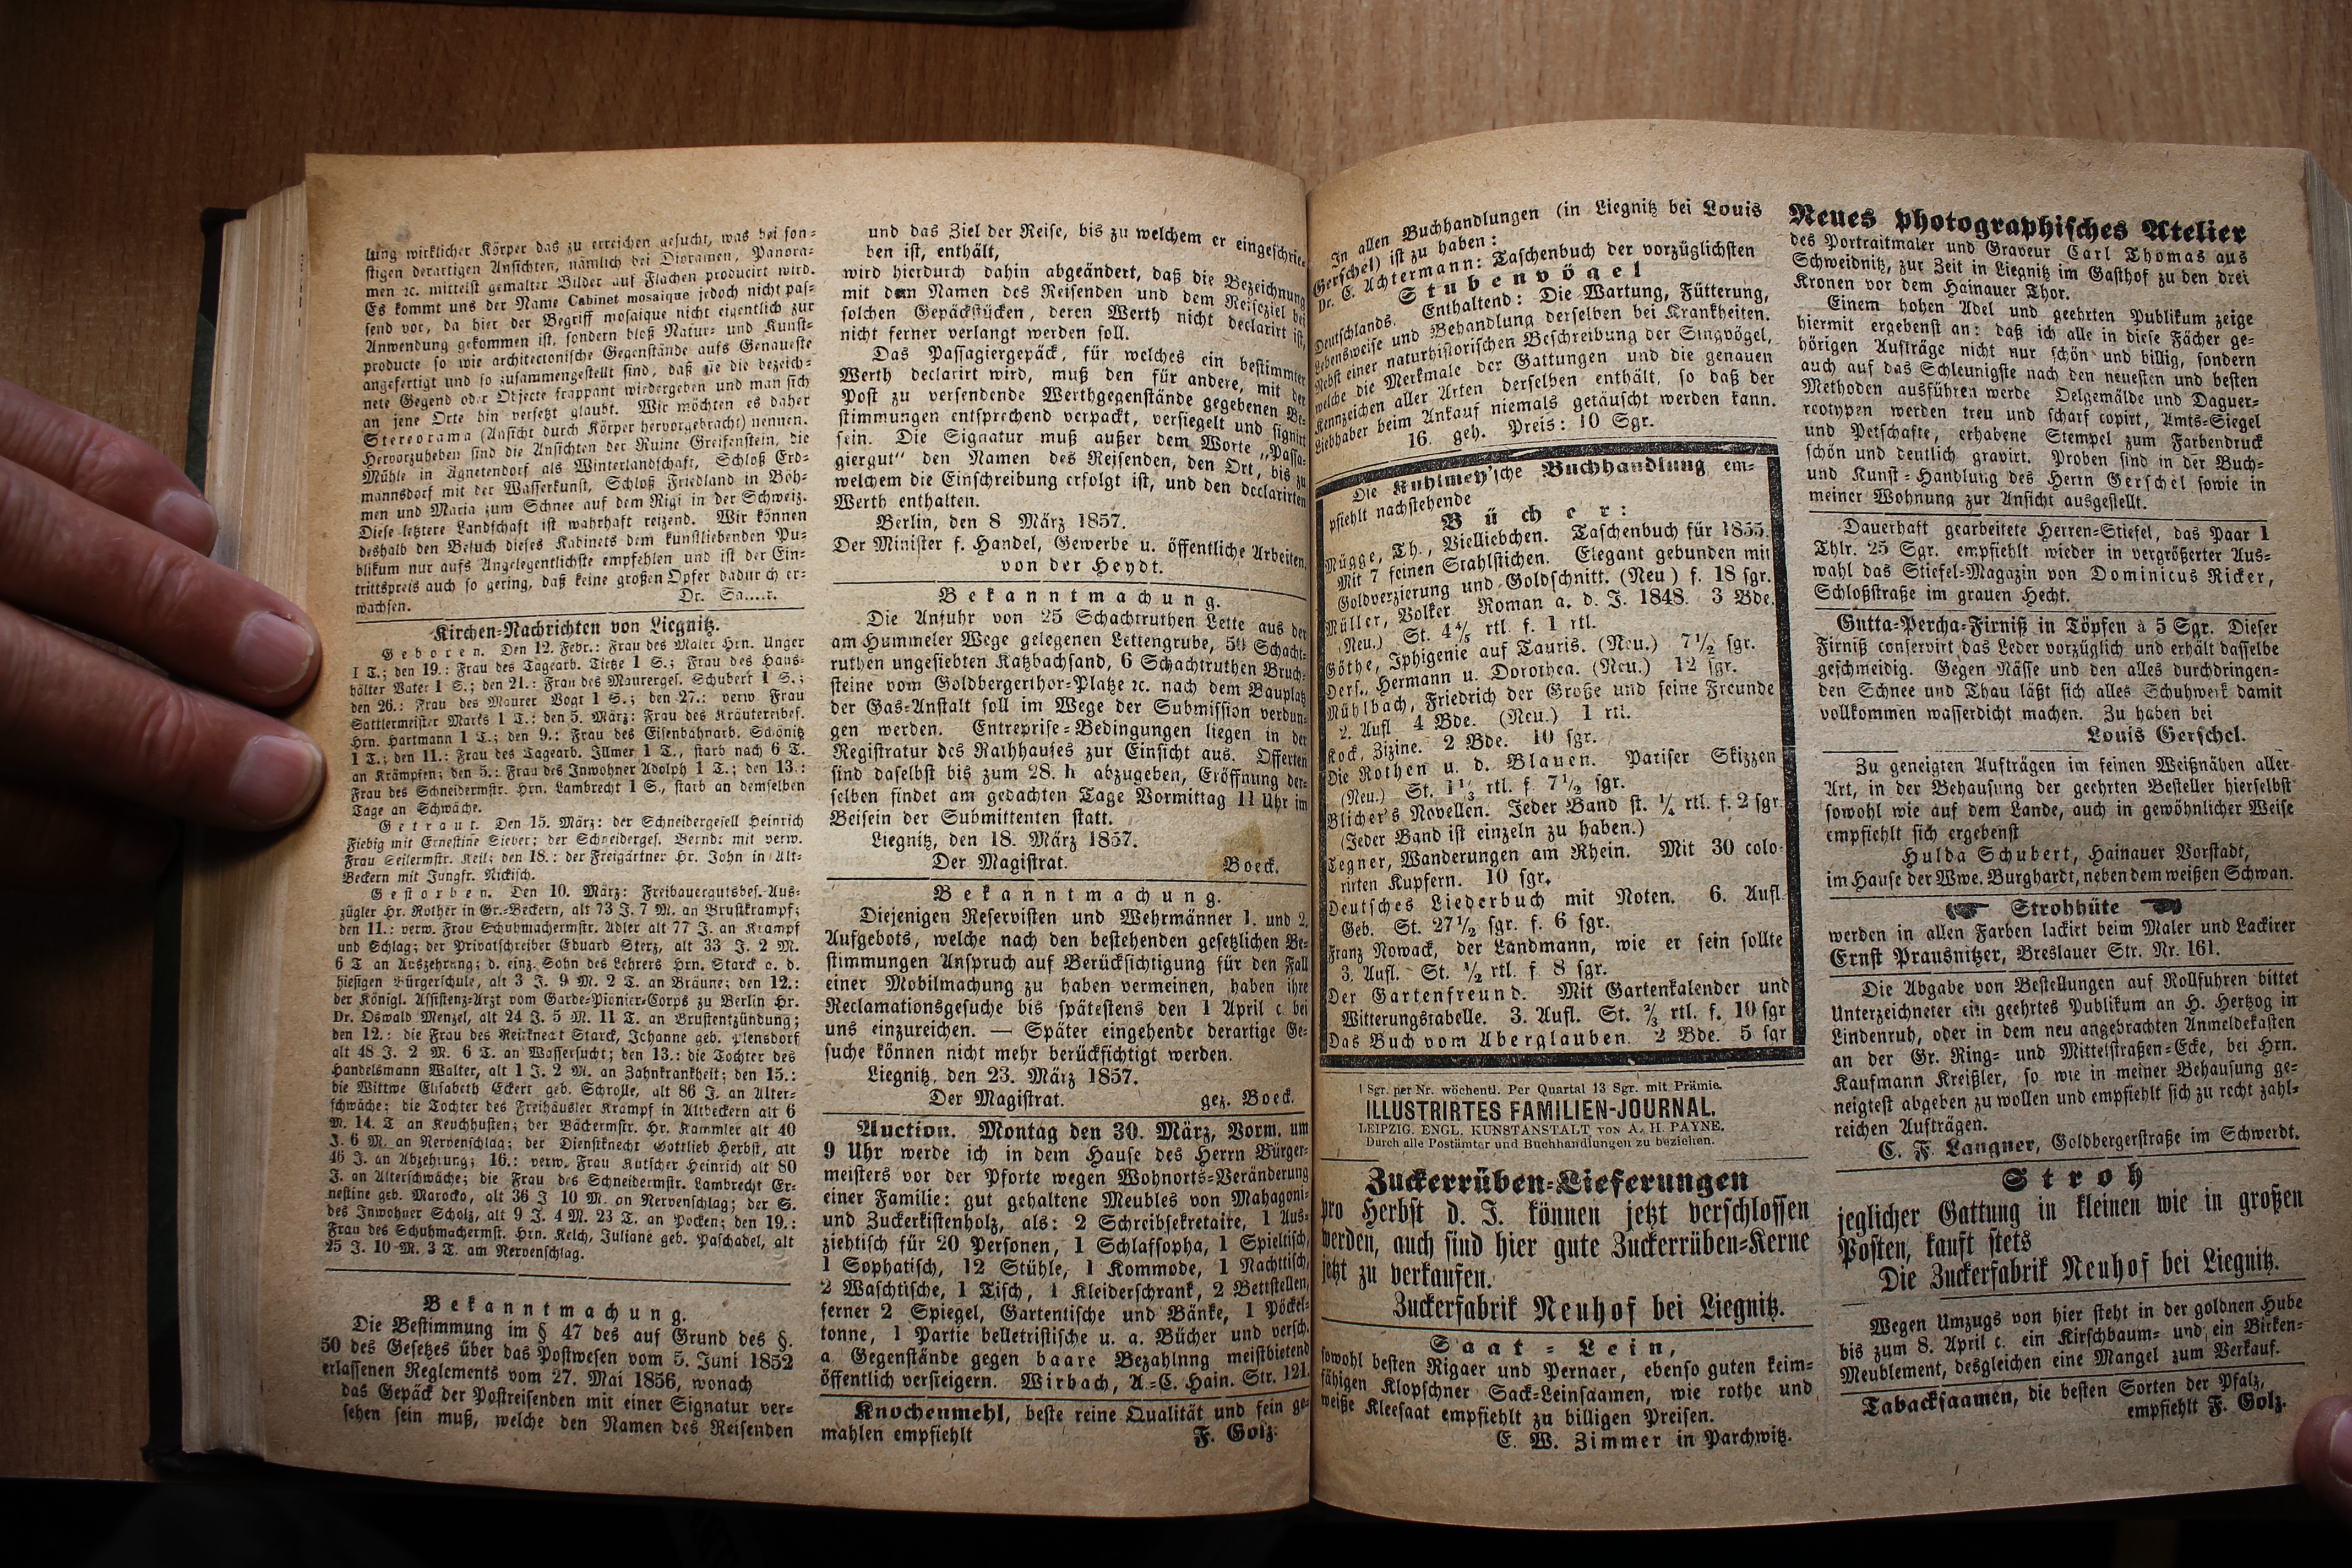 lung wirklicher Körper das zu erreichen gesucht, was bei son-
stigen derartigen Ansichten, nämlich bei Dioramen, Panora-
men ꝛc. mittelst gemalter Bilder auf Flächen producirt wird.
Es kommt uns der Name Cabinet mosaique jedoch nicht pas-
send vor, da hier der Begriff mosaique nicht eigentlich zur
Anwendung gekommen ist, sondern bloß Natur- und Kunst-
producte so wie architectonische Gegenstände aufs Genaueste
angefertigt und so zusammengestellt sind, daß sie die bezeich-
nete Gegend oder Objecte frappant wiedergeben und man sich
an jene Orte hin versetzt glaubt. Wir möchten es daher
Stereorama (Ansicht durch Körper hervorgebracht) nennen.
Hervorzuheben sind die Ansichten der Ruine Greifenstein, die
Mühle in Agnetendorf als Winterlandschaft, Schloß Erd-
mannsdorf mit der Wasserkunst, Schloß Friedland in Böh-
men und Maria zum Schnee auf dem Rigi in der Schweiz.
Diese letztere Landschaft ist wahrhaft reizend. Wir können
deshalb den Besuch dieses Kabinets dem kunstliebenden Pu-
blikum nur aufs Angelegentlichste empfehlen und ist der Ein-
trittspreis auch so gering, daß keine großen Opfer dadurch er-
wachsen. Dr. Sa.....r.
Kirchen-Nachrichten von Liegnitz.
Geboren. Den 12. Febr.: Frau des Maler Hrn. Unger
1 T.; den 19.: Frau des Tagearb. Tietze 1 S.; Frau des Haus-
hälter Vater 1 S.; den 21.: Frau des Maurerges. Schubert 1 S.;
den 26.: Frau des Maurer Vogt 1 S.; den 27.: verw. Frau
Sattlermeister Marks 1 T.; den 5. März: Frau des Kräutereibes.
Hrn. Hartmann 1 T.; den 9.: Frau des Eisenbahnarb. Schönitz
1 T.; den 11.: Frau des Tagearb. Illmer 1 T., starb nach 6 T.
an Krämpfen; den 5.: Frau des Inwohner Adolph 1 T.; den 13.:
Frau des Schneidermstr. Hrn. Lambrecht 1 S., starb an demselben
Tage an Schwäche.
Getraut. Den 15. März: der Schneidergesell Heinrich
Fiebig mit Ernestine Sieber; der Schneiderges. Berndt mit verw.
Frau Seilermstr. Keil; den 18.: der Freigärtner Hr. John in Alt-
Beckern mit Jungfr. Nickisch.
Gestorben. Den 10. März: Freibauergutsbes. Aus-
zügler Hr. Rother in Gr.-Beckern, alt 73 J. 7 M. an Brustkrampf;
den 11.: verw. Frau Schuhmachermstr. Adler alt 77 J. an Krampf
und Schlag; der Privatschreiber Eduard Sterz, alt 33 J. 2 M.
6 T. an Auszehrung; d. einz. Sohn des Lehrers Hrn. Starck a. d.
hiesigen Bürgerschule, alt 3 J. 9 M. 2 T. an Bräune; den 12.:
der Königl. Assistenz-Arzt vom Garde-Pionier-Corps zu Berlin Hr.
Dr. Oswald Menzel, alt 24 J. 5 M. 11 T. an Brustentzündung;
den 12.: die Frau des Reitknecht Starck, Johanne geb. Plensdorf
alt 48 J. 2 M. 6 T. an Wassersucht; den 13.: die Tochter des
Handelsmann Walter, alt 1 J. 2 M. an Zahnkrankheit; den 15.:
die Wittwe Elisabeth Eckert geb. Schrolle, alt 86 J. an Alter-
schwäche; die Tochter des Freihäusler Krampf in Altbeckern alt 6
M. 14. T an Keuchhusten; der Bäckermstr. Hr. Kammler alt 40
J. 6 M. an Nervenschlag; der Dienstknecht Gottlieb Herbst, alt
46 J. an Abzehrung; 16.: verw. Frau Kutscher Heinrich alt 80
J. an Alterschwäche; die Frau des Schneidermstr. Lambrecht Er-
nestine geb. Marocko, alt 36 J 10 M. an Nervenschlag; der S.
des Inwohner Scholz, alt 9 J. 4 M. 23 T. an Pocken; den 19.:
Frau des Schuhmachermst. Hrn. Kelch, Juliane geb. Paschadel, alt
25 J. 10 M. 3 T. am Nervenschlag.
Bekanntmachung.
Die Bestimmung im § 47 des auf Grund des §.
50 des Gesetzes über das Postwesen vom 5. Juni 1852
erlassenen Reglements vom 27. Mai 1856, wonach
das Gepäck der Postreisenden mit einer Signatur ver-
sehen sein muß, welche den Namen des Reisenden
und das Ziel der Reise, bis zu welchem er eingeschrie-
ben ist, enthält,
wird hierdurch dahin abgeändert, daß die Bezeichnung
mit dem Namen des Reisenden und dem Reiseziel bei
solchen Gepäckstücken, deren Werth nicht declarirt ist,
nicht ferner verlangt werden soll.
Das Passagiergepäck, für welches ein bestimmter
Werth declarirt wird, muß den für andere, mit der
Post zu versendende Werthgegenstände gegebenen Be-
stimmungen entsprechend verpackt, versiegelt und signirt
sein. Die Signatur muß außer dem Worte „Passa-
giergut“ den Namen des Reisenden, den Ort, bis zu
welchem die Einschreibung erfolgt ist, und den declarirten
Werth enthalten.
Berlin, den 8 März 1857.
Der Minister f. Handel, Gewerbe u. öffentliche Arbeiten,
von der Heydt.
Bekanntmachung.
Die Anfuhr von 25 Schachtruthen Lette aus der
am Hummeler Wege gelegenen Lettengrube, 50 Schacht-
ruthen ungesiebten Katzbachsand, 6 Schachtruthen Bruch-
steine vom Goldbergerthor-Platze ꝛc. nach dem Bauplatz
der Gas-Anstalt soll im Wege der Submission verdun-
gen werden. Entreprise-Bedingungen liegen in der
Registratur des Rathhauses zur Einsicht aus. Offerten
sind daselbst bis zum 28. h abzugeben, Eröffnung der-
selben findet am gedachten Tage Vormittag 11 Uhr im
Beisein der Submittenten statt.
Liegnitz, den 18. März 1857.
Der Magistrat. Boeck.
Bekanntmachung.
Diejenigen Reservisten und Wehrmänner 1. und 2.
Aufgebots, welche nach den bestehenden gesetzlichen Be-
stimmungen Anspruch auf Berücksichtigung für den Fall
einer Mobilmachung zu haben vermeinen, haben ihre
Reclamationsgesuche bis spätestens den 1 April c. bei
uns einzureichen. — Später eingehende derartige Ge-
suche können nicht mehr berücksichtigt werden.
Liegnitz, den 23. März 1857.
Der Magistrat. gez. Boeck.
Auction. Montag den 30. März, Vorm. um
9 Uhr werde ich in dem Hause des Herrn Bürger-
meisters vor der Pforte wegen Wohnorts-Veränderung
einer Familie: gut gehaltene Meubles von Mahagoni-
und Zuckerkistenholz, als: 2 Schreibsekretaire, 1 Aus-
ziehtisch für 20 Personen, 1 Schlafsopha, 1 Spieltisch,
1 Sophatisch, 12 Stühle, 1 Kommode, 1 Nachttisch,
2 Waschtische, 1 Tisch, 1 Kleiderschrank, 2 Bettstellen,
ferner 2 Spiegel, Gartentische und Bänke, 1 Pöckel-
tonne, 1 Partie belletristische u. a. Bücher und versch.
a. Gegenstände gegen baare Bezahlnng meistbietend
öffentlich versteigern. Wirbach, A.-C. Hain. Str. 121.
Knochenmehl, beste reine Qualität und fein ge-
mahlen empfiehlt F. Golz.
In allen Buchhandlungen (in Liegnitz bei Louis
Gerschel) ist zu haben:
Dr. C. Achtermann: Taschenbuch der vorzüglichsten
Stubenvögel
Deutschlands. Enthaltend: Die Wartung, Fütterung,
Lebensweise und Behandlung derselben bei Krankheiten.
Nebst einer naturhistorischen Beschreibung der Singvögel,
welche die Merkmale der Gattungen und die genauen
Kennzeichen aller Arten derselben enthält, so daß der
Liebhaber beim Ankauf niemals getäuscht werden kann.
16. geh. Preis: 10 Sgr.
Die Kuhlmey'sche Buchhandlung em-
pfiehlt nachstehende
Bücher:
Mügge, Th., Vielliebchen. Taschenbuch für 1855.
Mit 7 feinen Stahlstichen. Elegant gebunden mit
Goldverzierung und Goldschnitt. (Neu) f. 18 sgr.
Müller, Volker. Roman a. d. J. 1848. 3 Bde.
(Neu.) St. 4⅘ rtl. f. 1 rtl.
Göthe, Iphigenie auf Tauris. (Neu.) 7½ sgr.
Ders., Hermann u. Dorothea. (Neu.) 12 sgr.
Mühlbach, Friedrich der Große und seine Freunde
2. Aufl 4 Bde. (Neu.) 1 rtl.
Kock, Zizine. 2 Bde. 10 sgr.
Die Rothen u. d. Blauen. Pariser Skizzen
(Neu.) St. 1⅓ rtl. f 7½ sgr.
Blicher's Novellen. Jeder Band st. ¼ rtl. f. 2 sgr.
(Jeder Band ist einzeln zu haben.)
Tegner, Wanderungen am Rhein. Mit 30 colo-
rirten Kupfern. 10 sgr.
Deutsches Liederbuch mit Noten. 6. Aufl.
Geb. St. 27½ sgr. f. 6 sgr.
Franz Nowack, der Landmann, wie er sein sollte
3. Aufl. St. ½ rtl. f 8 sgr.
Der Gartenfreund. Mit Gartenkalender und
Witterungstabelle. 3. Aufl. St. ⅔ rtl. f. 10 sgr
Das Buch vom Aberglauben. 2 Bde. 5 sgr
1 Sgr. per Nr. wöchentl. Per Quartal 13 Sgr. mit Prämie.
ILLUSTRIRTES FAMILIEN-JOURNAL.
LEIPZIG. ENGL. KUNSTANSTALT VON A. H. PAYNE.
Durch alle Postämter und Buchhandlungen zu beziehen.
Zuckerrüben-Lieferungen
pro Herbst d. J. können jetzt verschlossen
werden, auch sind hier gute Zuckerrüben-Kerne
jetzt zu verkaufen.
Zuckerfabrik Neuhof bei Liegnitz.
Saat-Lein,
sowohl besten Rigaer und Pernaer, ebenso guten keim-
fähigen Klopschner Sack-Leinsaamen, wie rothe und
weiße Kleesaat empfiehlt zu billigen Preisen.
E. W. Zimmer in Parchwitz.
Neues photographisches Atelier
des Portraitmaler und Graveur Carl Thomas aus
Schweidnitz, zur Zeit in Liegnitz im Gasthof zu den drei
Kronen vor dem Hainauer Thor.
Einem hohen Adel und geehrten Publikum zeige
hiermit ergebenst an: daß ich alle in diese Fächer ge-
hörigen Aufträge nicht nur schön und billig, sondern
auch auf das Schleunigste nach den neuesten und besten
Methoden ausführen werde Oelgemälde und Daguer-
reotypen werden treu und scharf copirt, Amts-Siegel
und Petschafte, erhabene Stempel zum Farbendruck
schön und deutlich gravirt. Proben sind in der Buch-
und Kunst-Handlung des Herrn Gerschel sowie in
meiner Wohnung zur Ansicht ausgestellt.
Dauerhaft gearbeitete Herren-Stiefel, das Paar 1
Thlr. 25 Sgr. empfiehlt wieder in vergrößerter Aus-
wahl das Stiefel-Magazin von Dominicus Ricker,
Schloßstraße im grauen Hecht.
Gutta-Percha-Firniß in Töpfen à 5 Sgr. Dieser
Firniß conservirt das Leder vorzüglich und erhält dasselbe
geschmeidig. Gegen Nässe und den alles durchdringen-
den Schnee und Thau läßt sich alles Schuhwerk damit
vollkommen wasserdicht machen. Zu haben bei
Louis Gerschel.
Zu geneigten Aufträgen im feinen Weißnähen aller
Art, in der Behausung der geehrten Besteller hierselbst
sowohl wie auf dem Lande, auch in gewöhnlicher Weise
empfiehlt sich ergebenst
Hulda Schubert, Hainauer Vorstadt,
im Hause der Wwe. Burghardt, neben dem weißen Schwan.
Strohhüte
werden in allen Farben lackirt beim Maler und Lackirer
Ernst Prausnitzer, Breslauer Str. Nr. 161.
Die Abgabe von Bestellungen auf Rollfuhren bittet
Unterzeichneter ein geehrtes Publikum an H. Hertzog in
Lindenruh, oder in dem neu angebrachten Anmeldekasten
an der Gr. Ring- und Mittelstraßen-Ecke, bei Hrn.
Kaufmann Kreißler, so wie in meiner Behausung ge-
neigtest abgeben zu wollen und empfiehlt sich zu recht zahl-
reichen Aufträgen.
C. F. Langner, Goldbergerstraße im Schwerdt.
Stroh
jeglicher Gattung in kleinen wie in großen
Posten, kauft stets
Die Zuckerfabrik Neuhof bei Liegnitz.
Wegen Umzugs von hier steht in der goldnen Hube
bis zum 8. April c. ein Kirschbaum- und ein Birken-
Meublement, desgleichen eine Mangel zum Verkauf.
Tabacksaamen, die besten Sorten der Pfalz,
empfiehlt F. Golz.